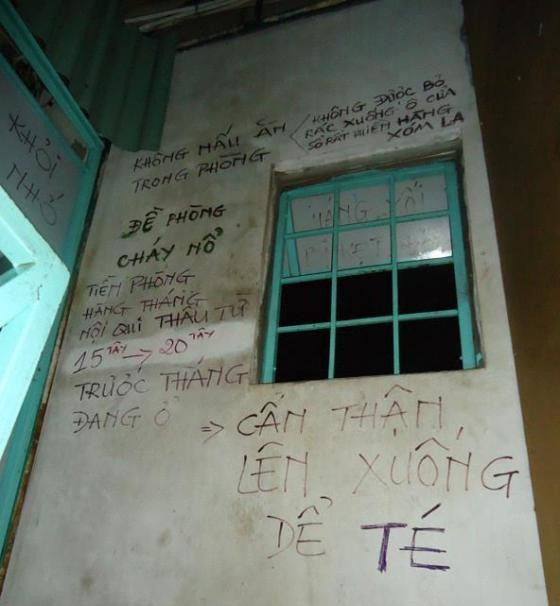 KHÔNG NẤU ĂN
TRONG PHÒNG
KHÔNG ĐƯỢC BỎ
RÁC XUỐNG Ô CỬA
SỔ RẤT PHIỀN HÀNG
XÓM LA
ĐỀ PHÒNG
CHÁY NỔ
TIỀN PHÒNG
HÀNG THÁNG
NỘI QUI THÂU TỪ
15 TÂY → 20 TÂY
TRƯỚC THÁNG
ĐANG Ở
⇒ CẨN THẬN
LÊN XUỐNG
DỂ TÉ
KHÓI
NHỎ